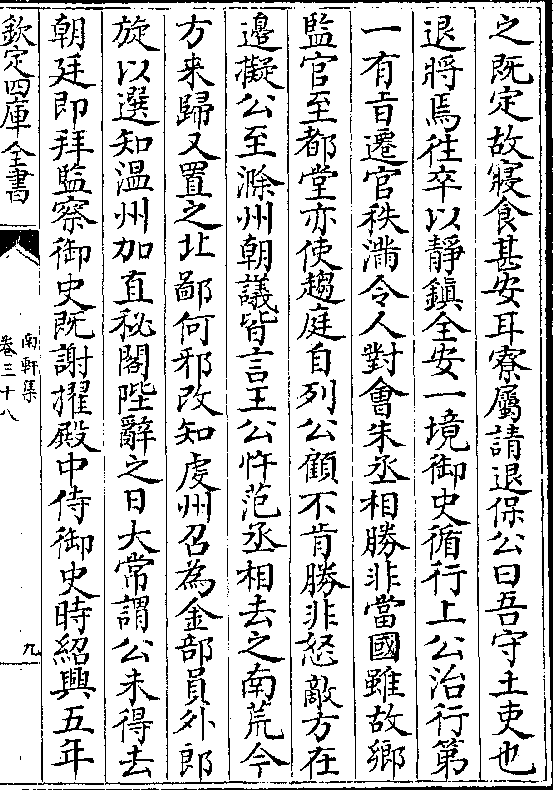 之既定故寢食甚安耳寮屬請退保公曰吾守土吏也
退將焉往卒以靜鎮全安一境御史循行上公治行第
一有旨遷官秩滿令人對會朱丞相勝非當國雖故鄉
監官至都堂亦使趨庭自列公顧不肯勝非怒敵方在
邊擬公至滁州朝議皆言王公忤范丞相去之南荒今
方来歸又置之北鄙何邪改知虔州召為金部員外郎
旋以選知温州加直秘閣陛辭之日大常謂公未得去
朝廷即拜監察御史既謝擢殿中侍御史時紹興五年
欽定四庫全書
南軒集
卷三十八
九